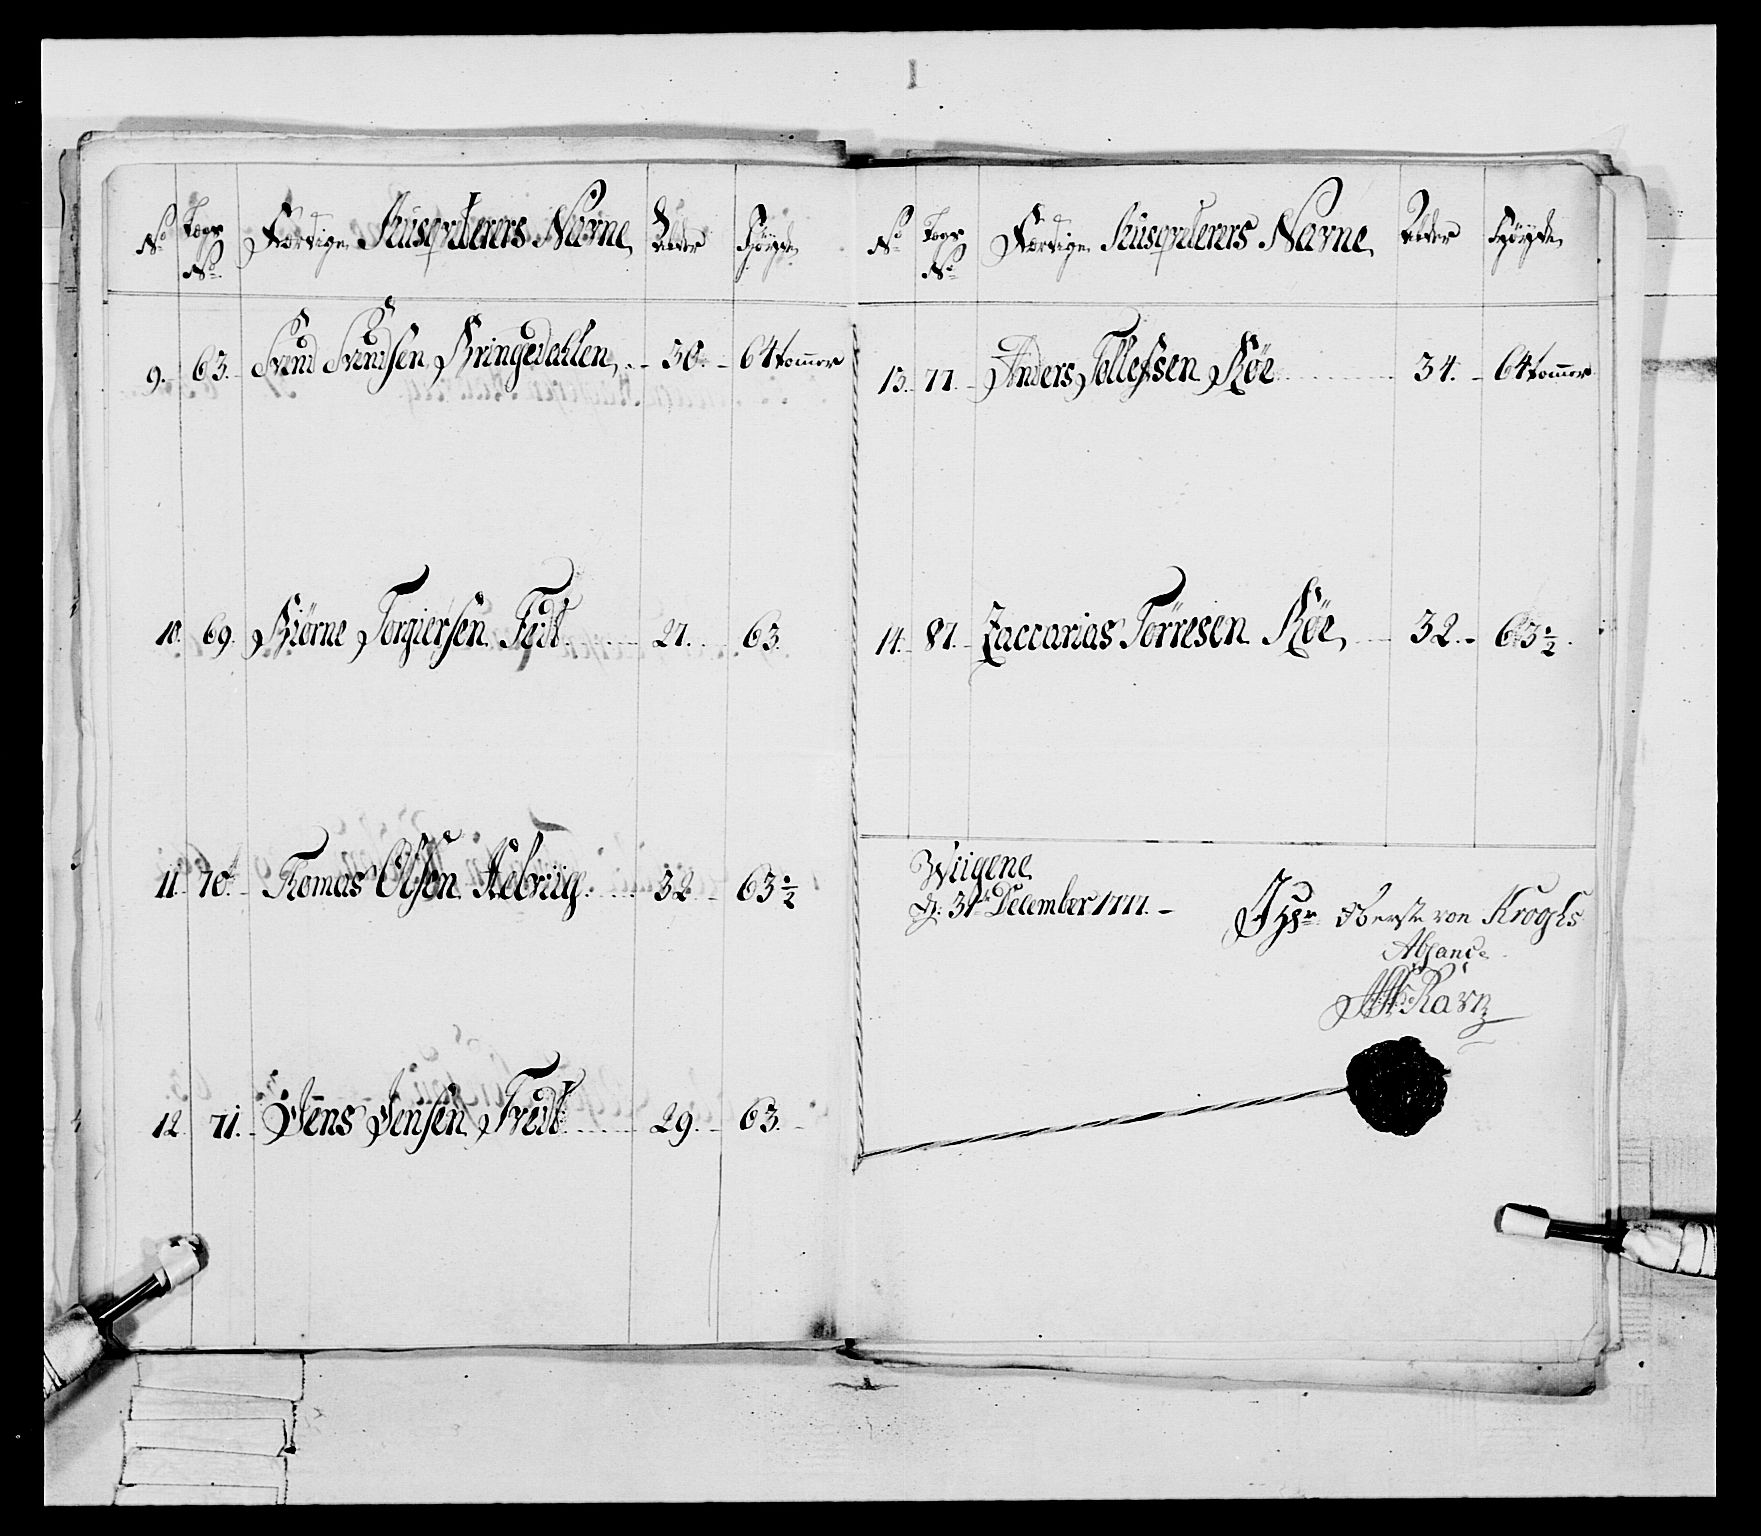 No Lægs No Færdige Musqveterers Navne Alder Høyde
9. 63. Svend Svendsen Kringedahlen 30. 64 tommer
10. 69. Biörne Torgiersen Fedt 27. 63.
11. 70. Tomas Olssen Aebvüg 32. 63 1/2
12. 71. Jens Jensen Tvedt 29. 63.
No Lægs No Færdige Musqveterers Navne Alder Høyde
13. 77. Anders Tollefssen Röe 34. 64 tommer
14. 87. Zaccarias Törresen Röe 32. 63 1/2
Wiigene
D: 31te December 1777.
Oberste von Kroghs
Absance
Ravn